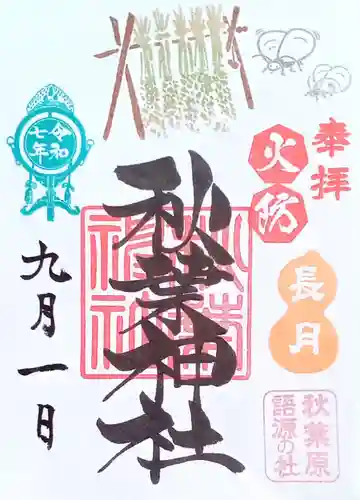 奉拝
火防
長月
秋葉原
語源の社
秋葉神社
秋葉神社
令和
七年
九月一日